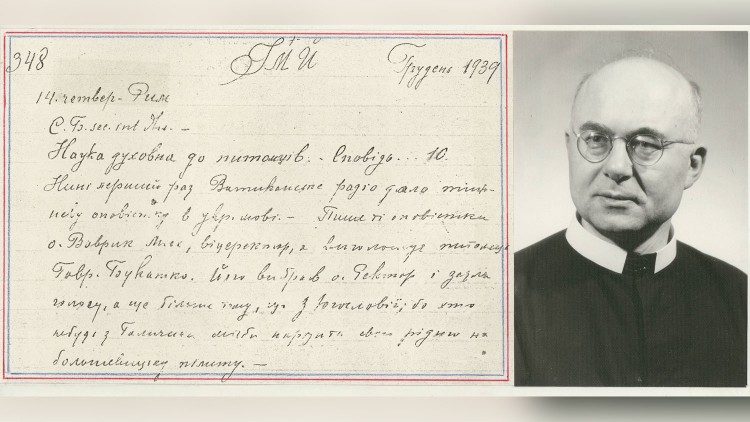 348 ІМЙ Грудень 1939
14. четвер - Рим
С. Б.
Наука духовна до питомців. - Сповідь... 10.
Нині перший раз Ватиканське радіо дало
оповістку в укр. мові. - Пише ті оповістки
о. Ваврик Мих., віцеректор, а виголошує питомець
Гавр. Букатко. Його вибрав о. Ректор і задля
голосу, а ще більше тому, що з Югославії; бо хто
небудь з Галичини міг би наразити свою рідню на
большевицку пімсту. -